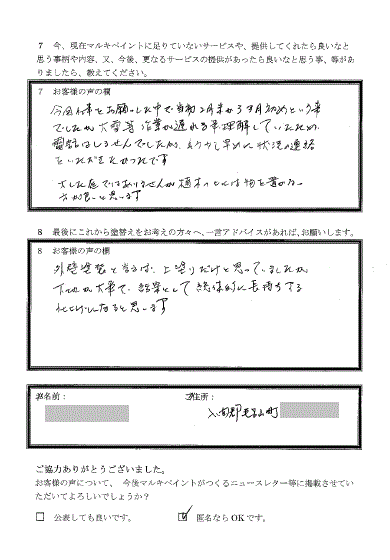 7 今、現在マルキペイントに足りていないサービスや、提供してくれたら良いなと
思う事柄や内容、又、今後、更なるサービスの提供があったら良いなと思う事、等があ
りましたら、教えてください。
7 お客様の声の欄
今回仕事をお願いした中で当初2月末から3月初めという事
でしたが大雪等 作業が遅れる事理解していたため
電話はしませんでしたが、もう少し早めに状況の連絡
をいただきたかったです
大した庭ではありませんが植木の上には物を置かない
方が良いと思います
8 最後にこれから塗替えをお考えの方々へ、一言アドバイスがあれば、お願いします。
8 お客様の声の欄
外壁塗装と言えば、上塗りだけと思っていましたが
下地が大事で、結果として 総体的に長持ちする
仕上げになると思います
お名前：
ご住所：
入間郡毛呂山町
ご協力ありがとうございました。
お客様の声について、今後マルキペイントがつくるニュースレター等に掲載させてい
ただいてよろしいでしょうか？
□ 公表しても良いです。
☑ 匿名ならOKです。